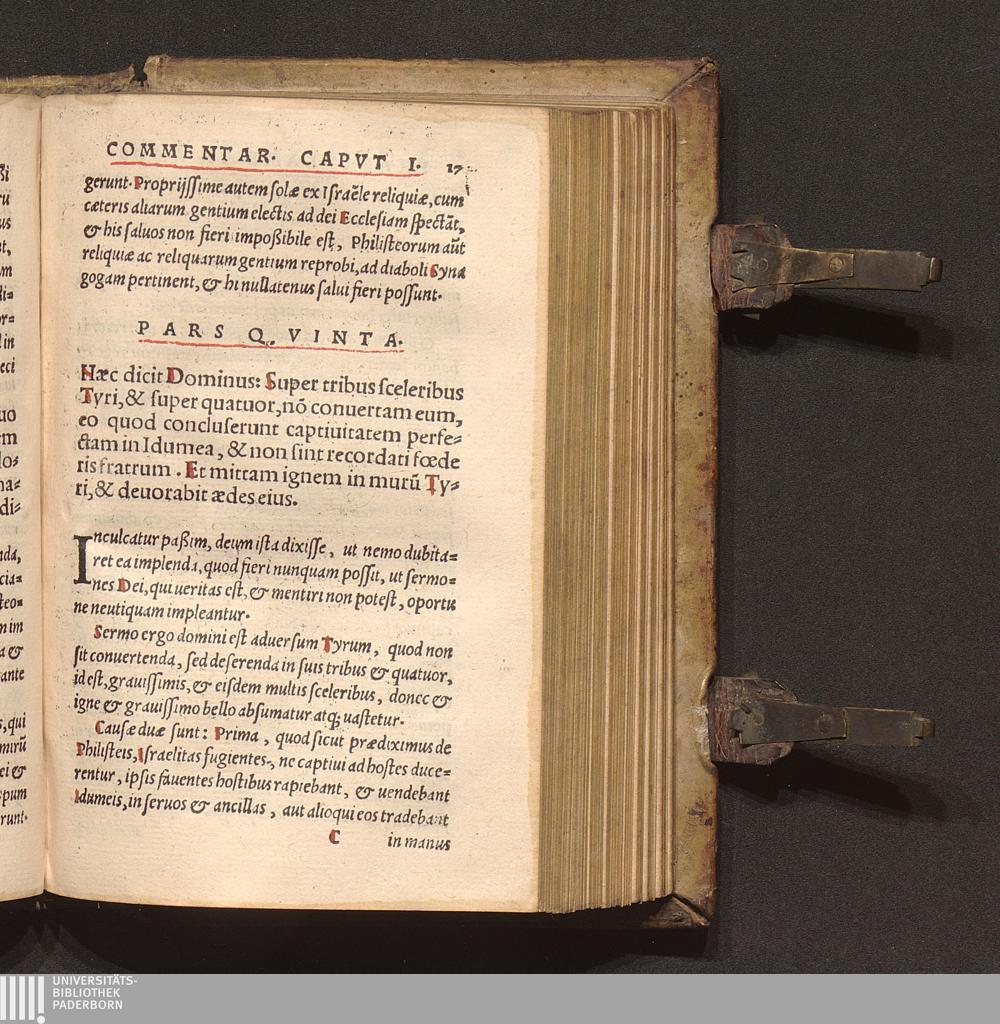 COMMENTAR. CAPVT I. 17
gerunt. Proprijssime autem solæ ex Israële reliquiæ, cum
cæteris aliarum gentium electis ad dei Ecclesiam spectāt,
& his saluos non fieri impoßibile est, Philisteorum aūt
reliquiæ ac reliquarum gentium reprobi, ad diaboli Syna
gogam pertinent, & hi nullatenus salui fieri possunt.
PARS QVINTA.
Hæc dicit Dominus: Super tribus sceleribus
Tyri, & super quatuor, nō conuertam eum,
eo quod concluserunt captiuitatem perfe=
ctam in Idumea, & non sint recordati fœde
ris fratrum. Et mittam ignem in murū Ty=
ri, & deuorabit ædes eius.
Inculcatur paßim, deum ista dixisse, ut nemo dubita=
ret ea implenda, quod fieri nunquam possit, ut sermo=
nes Dei, qui ueritas est, & mentiri non potest, oportu
ne neutiquam impleantur.
Sermo ergo domini est aduersum Tyrum, quod non
sit conuertenda, sed deserenda in suis tribus & quatuor,
id est, grauissimis, & eisdem multis sceleribus, donec &
igne & grauissimo bello absumatur atq; uastetur.
Causæ duæ sunt: Prima, quod sicut prædiximus de
Philisteis, Israelitas fugientes, ne captiui ad hostes duce=
rentur, ipsis fauentes hostibus rapiebant, & uendebant
Idumeis, in seruos & ancillas, aut alioqui eos tradebant
C in manus
UNIVERSITÄTS-
BIBLIOTHEK
PADERBORN